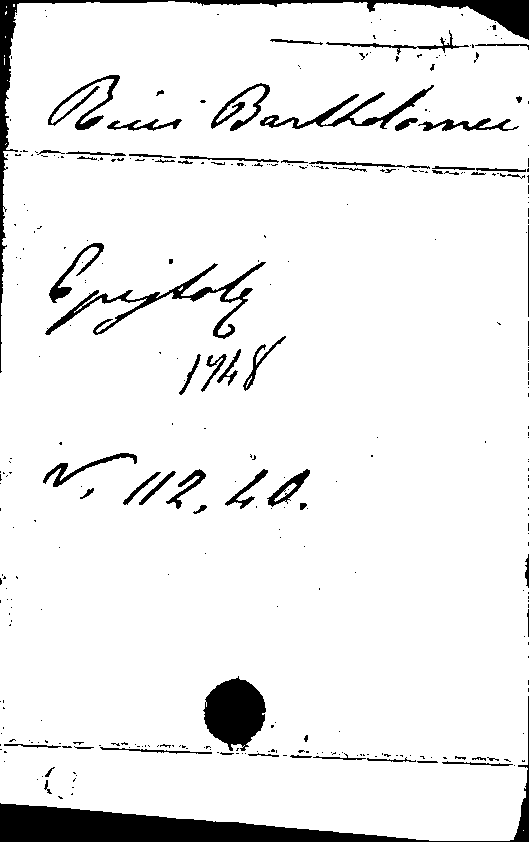 Ricii Bartholomei
Epistolę
1748
V. 112. 40.